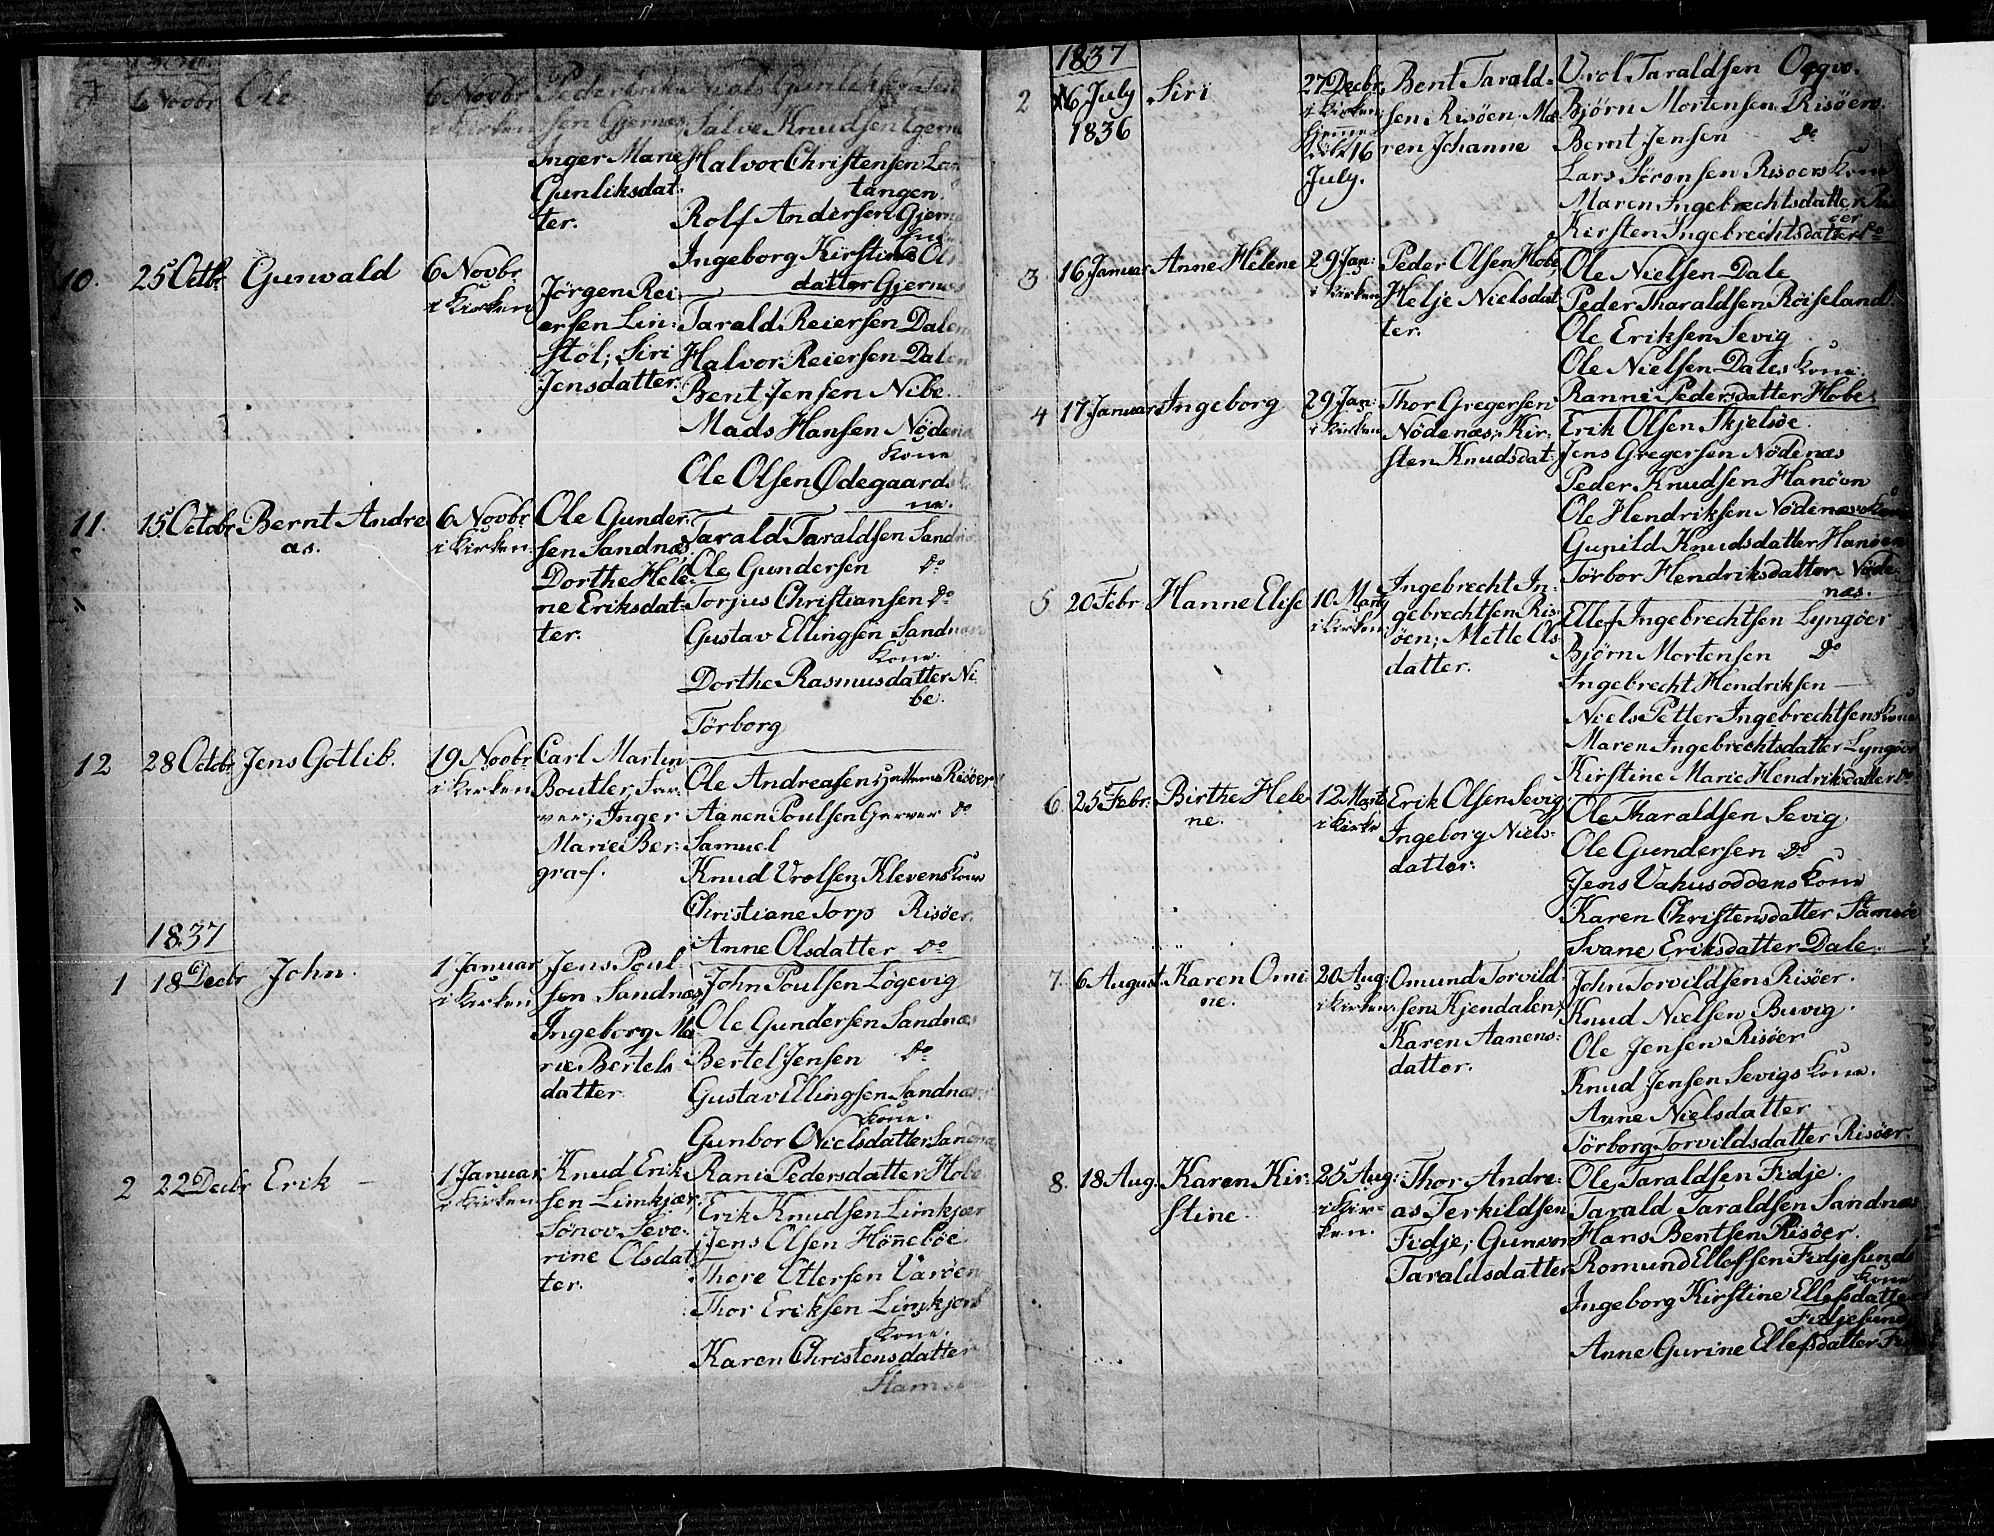 6 Novbr Ole 6 Novbr i Kirken
sen Gjernæs,
Salve Knudsen
Inger Marie Gunliksdatter.
Halvor Christensen
tangen.
Rolf Andersen
Ingeborg Kirstine
datter
10. 25 Octb. Gunvald 6 Novbr i Kirken
Jörgen Rei-
ersen Lin-
stöl; Siri
Jensdatter.
Tarald Reiersen
Halvor Reiersen
Bent Jensen Nibe
Mads Hansen
Kone
Ole Olsen
ne.
11. 15 Octobr Bernt Andre
as.
6 Novbr
i Kirken
Ole Gunder-
sen Sandnæs
Dorthe Hele-
ne Eriksdat-
ter.
Tarald Taraldsen
Ole Gundersen Do
Torjus Christiansen Do
Gustav Ellingsen Sandnæs
Kone.
Dorthe Rasmusdatter Ni-
be.
Törborg
12 28 Octobr Jens Gotlib.
19 Novbr
i Kirken
Carl Martin
Inger
Marie Ber-
graf.
Ole Andreasen Risöer
Aanen Poulsen Do
Samuel
Knud Vrolsen Klevens Kone
Christiane Torp Risöer
Anne Olsdatter Do
1837
1 18 Decbr John.
1 Januar
i Kirken
Jens Poul-
sen Sandnæs
Ingeborg Ma
rie Bertels
datter
John Poulsen Lögevig
Ole Gundersen Sandnæs
Bertel Jensen Do
Gustav Ellingsen Sandnæs
Kone.
Gunbor Nielsdatter
2 22 Decbr Erik
1 Januar
i Kirken
Knud Erik-
sen Limkjær,
Sönov Seve-
rine Olsdat
ter.
Rani Pedersdatter Hobe
Erik Knudsen Limkjær
Jens Olsen
Thore
Thor Eriksen
Kone.
Karen Christensdatter
1837
2 16 July
1836
Siri
27 Decbr.
i Kirken
16
July.
Bent Tarald-
sen Risöen, Ma
ren Johanne
Vrol Taraldsen
Björn Mortensen Risöer
Bernt Jensen Do
Lars Sörensen Risöers Kone
Maren Ingebrechtsdatter
Kirsten Ingebrechtsdatter Do
3 16 Januar Anne Helene
29 Jan:
i Kirken
Peder Olsen Hobe
Helje Nielsdat
ter.
Ole Nielsen Dale
Peder Tharaldsen Röiseland
Ole Eriksen Sevig
Ole Nielsen Dales Kone.
Ranni Pedersdatter Hobe
4 17 Januar Ingeborg
29 Jan:
i Kirken
Thor Gregersen
Nödenæs; Kir-
sten Knudsdat:
Erik Olsen Skjelsöe.
Jens Gregersen Nödenæs
Peder Knudsen Hanöen
Ole Hendriksen Nödenæs Kone
Gunild Knudsdatter Hanöen
Torbor Hendriksdatter Nöde-
næs.
5 20 Febr Hanne Elise
10 Marts
i Kirken
Ingebrecht In-
gebrechtsen Ris-
öen; Mette Ols-
datter.
Ellef Ingebrechtsen Lyngöer
Björn Mortensen Do
Ingebrecht Hendriksen
Niels Petter Ingebrechtsens Kone
Maren Ingebrechtsdatter Lyngöer
Kirstine Marie Hendriksdatter Do
6. 25 Febr. Birthe Hele-
ne.
12 Marts
i Kirke
Erik Olsen Sevig
Ingeborg Niels-
datter:
Ole Tharaldsen Sevig
Ole Gundersen Do
Jens Vahusoddens Kone
Karen Christensdatter
Svane Eriksdatter Dale.
7. 6 August. Karen Omi
ne.
20 Aug:
i Kirken.
Omund Torvild-
sen Kjendalen;
Karen Aanens-
datter.
John Torvildsen Risöer.
Knud Nielsen Buvig.
Ole Jensen Risöer
Knud Jensen Sevigs Kone.
Anne Nielsdatter
Törborg Torvildsdatter Risöer.
8. 18 Aug: Karen Kir-
stine.
25 Aug:
i Kir-
ken.
Thor Andre-
as Terkildsen
Fidje; Gunvor
Taraldsdatter
Ole Taraldsen Fidje.
Tarald Taraldsen Sandnæs
Hans Bentsen Risöer.
Romund Ellefsen Fidjesunds
Kone
Ingeborg Kirstine Ellefsdatter
Fidjesund
Anne Gurine Ellefsdatter